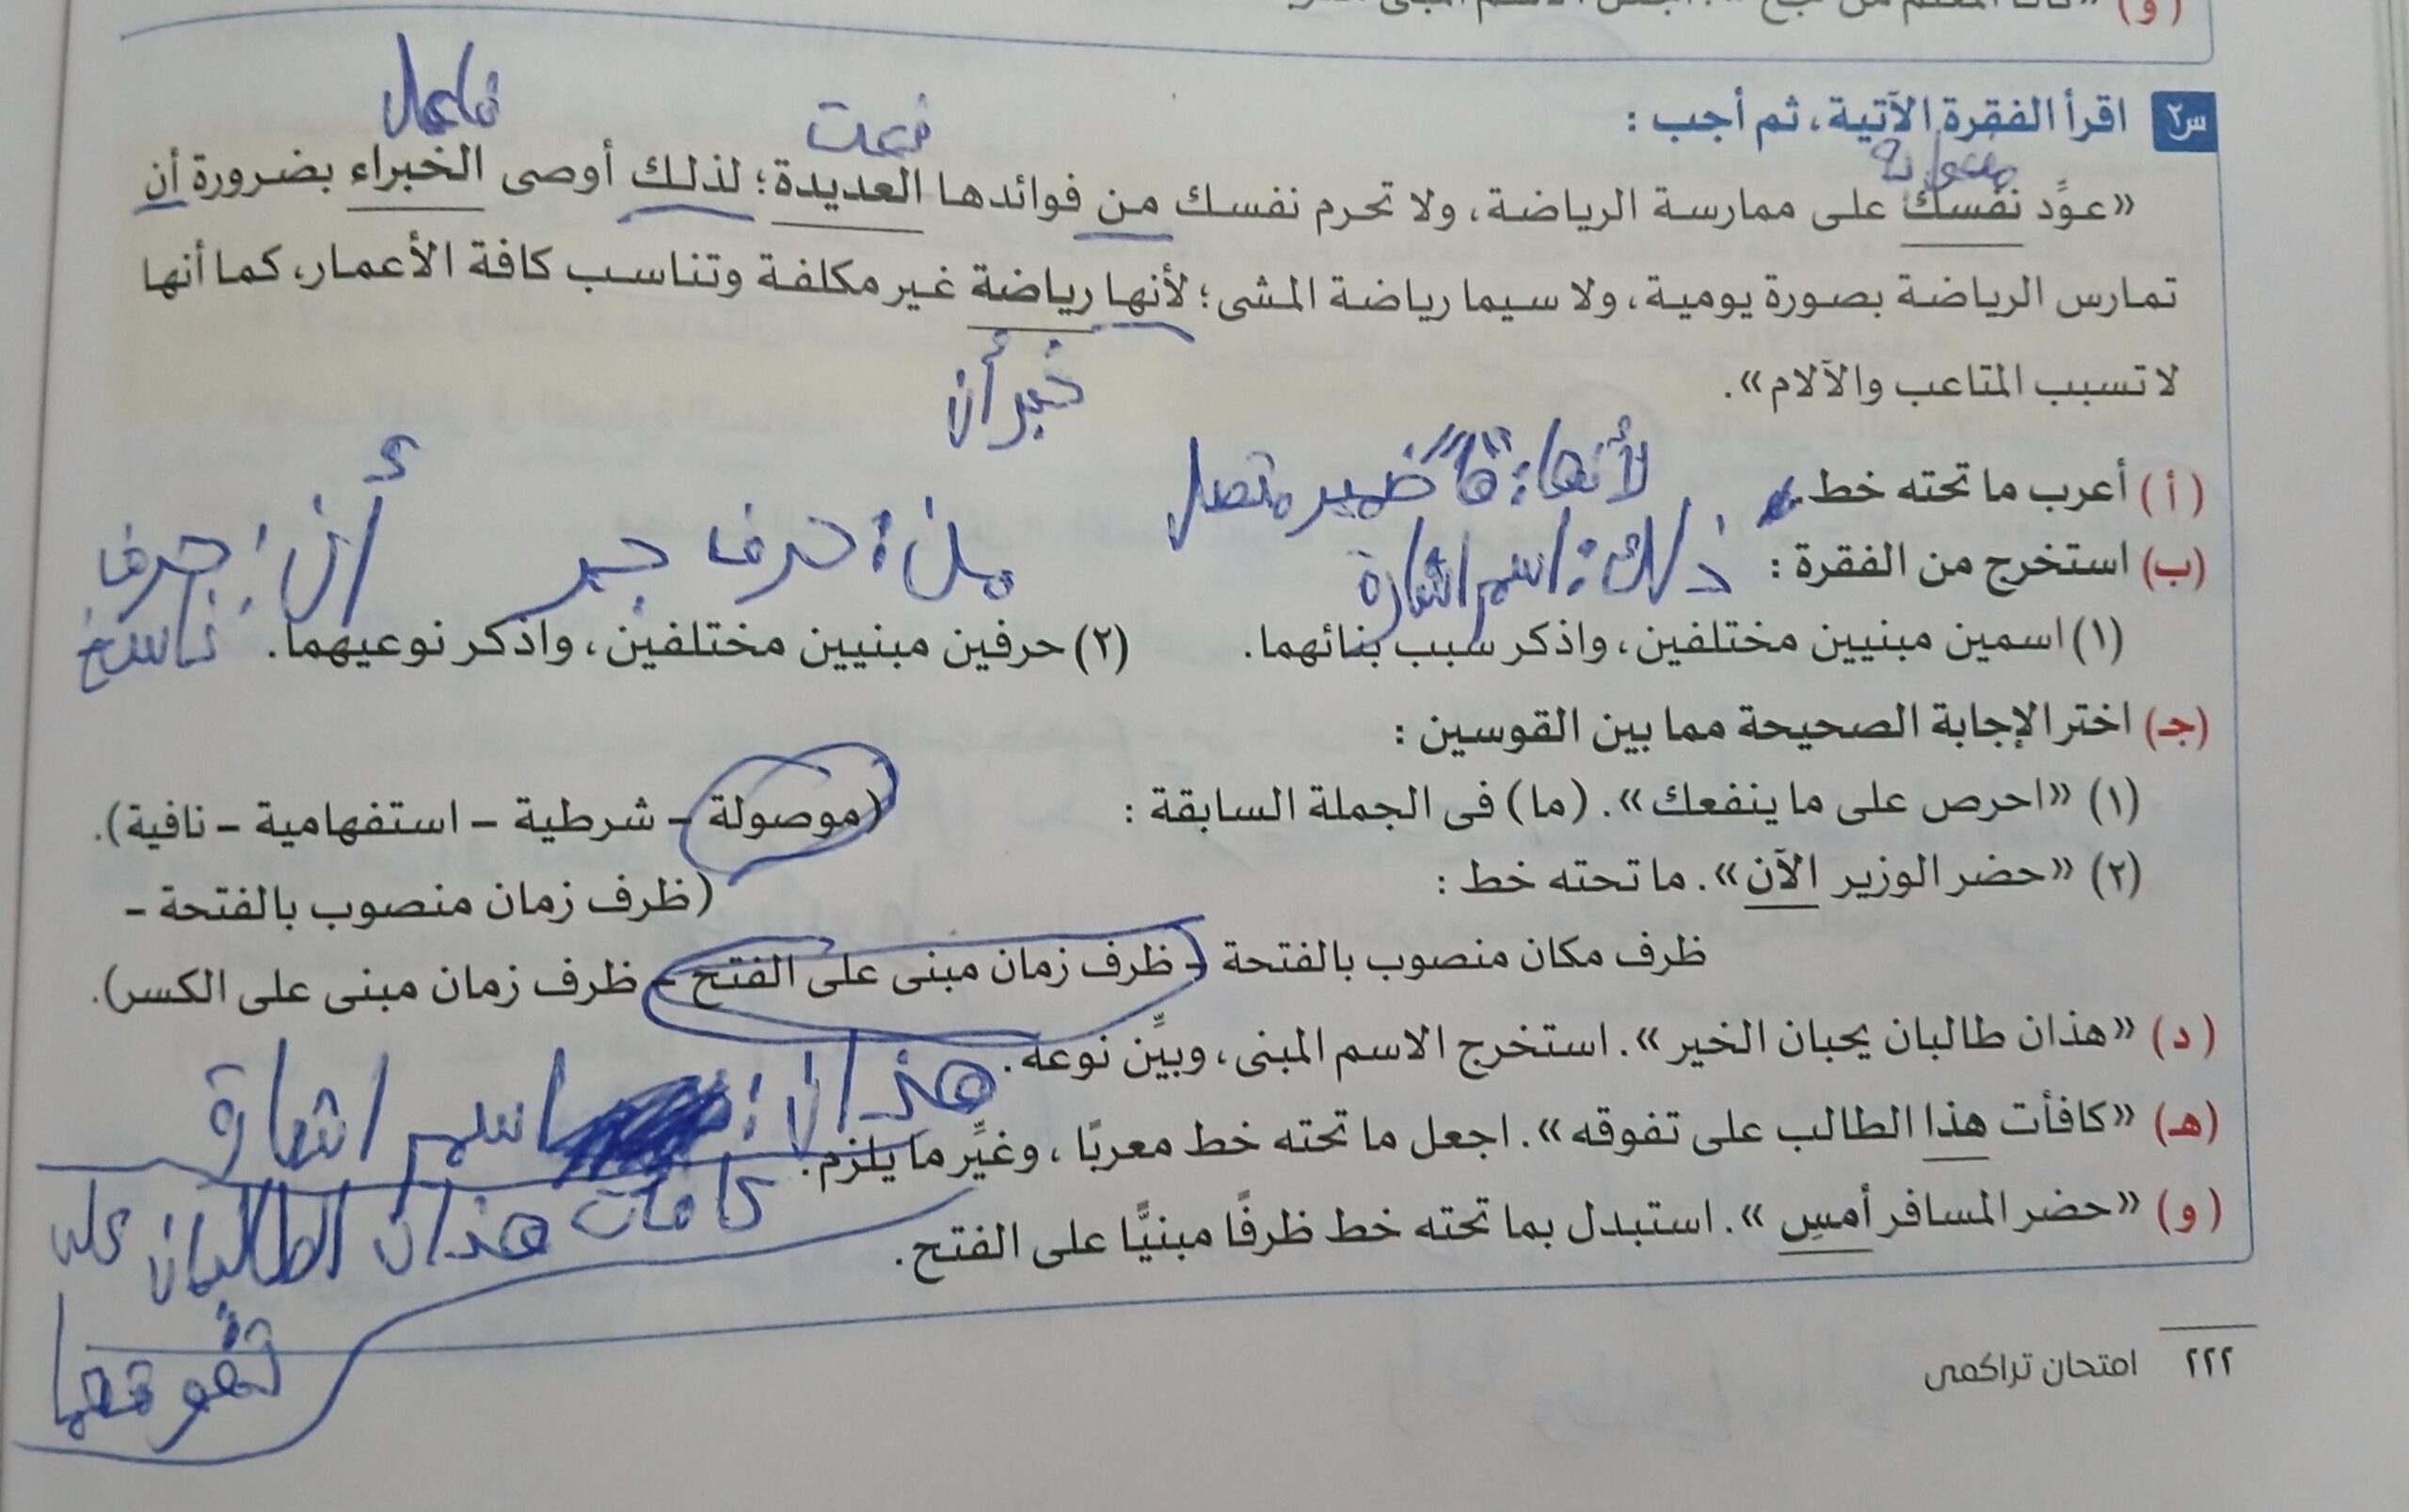 (و)
س٢ اقرأ الفقرة الآتية، ثم أجب :
فاعل
نعت
«عوِّد نفسك على ممارسة الرياضة، ولا تحرم نفسك من فوائدها العديدة؛ لذلك أوصى الخبراء بضرورة أن
تمارس الرياضة بصورة يومية، ولا سيما رياضة المشى؛ لأنها رياضة غير مكلفة وتناسب كافة الأعمار، كما أنها
خبر أن
لا تسبب المتاعب والآلام».
(أ) أعرب ما تحته خط.
لأنها: "ها" ضمير متصل
(ب) استخرج من الفقرة :
ذلك: اسم اشارة
من: حرف جر
أن: حرف ناسخ
(١) اسمين مبنيين مختلفين، واذكر سبب بنائهما. (٢) حرفين مبنيين مختلفين، واذكر نوعيهما.
(جـ) اختر الإجابة الصحيحة مما بين القوسين :
(١) «احرص على ما ينفعك». (ما) فى الجملة السابقة : (موصولة – شرطية – استفهامية – نافية).
(٢) «حضر الوزير الآن». ما تحته خط : (ظرف زمان منصوب بالفتحة –
ظرف مكان منصوب بالفتحة – ظرف زمان مبنى على الفتح – ظرف زمان مبنى على الكسر).
(د) «هذان طالبان يحبان الخير». استخرج الاسم المبنى، وبيِّن نوعه.
هذان: اسم اشارة
(هـ) «كافأت هذا الطالب على تفوقه». اجعل ما تحته خط معربًا، وغيِّر ما يلزم.
كافات هذان الطالبان على
تفوقهما
(و) «حضر المسافر أمسِ». استبدل بما تحته خط ظرفًا مبنيًّا على الفتح.
٢٢٢ امتحان تراكمى